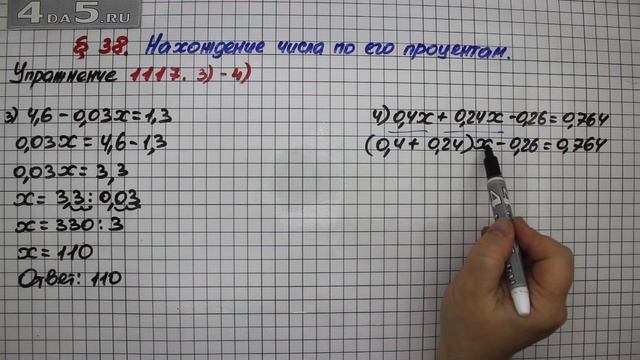 4DA5.RU
§ 38. Нахождение числа по его процентам.
Упражнение 1117. 3)-4)
3) 4,6 - 0,03x = 1,3
0,03x = 4,6 - 1,3
0,03x = 3,3
x = 3,3 : 0,03
x = 330 : 3
x = 110
Ответ: 110
4) 0,4x + 0,24x - 0,26 = 0,764
(0,4 + 0,24)x - 0,26 = 0,764